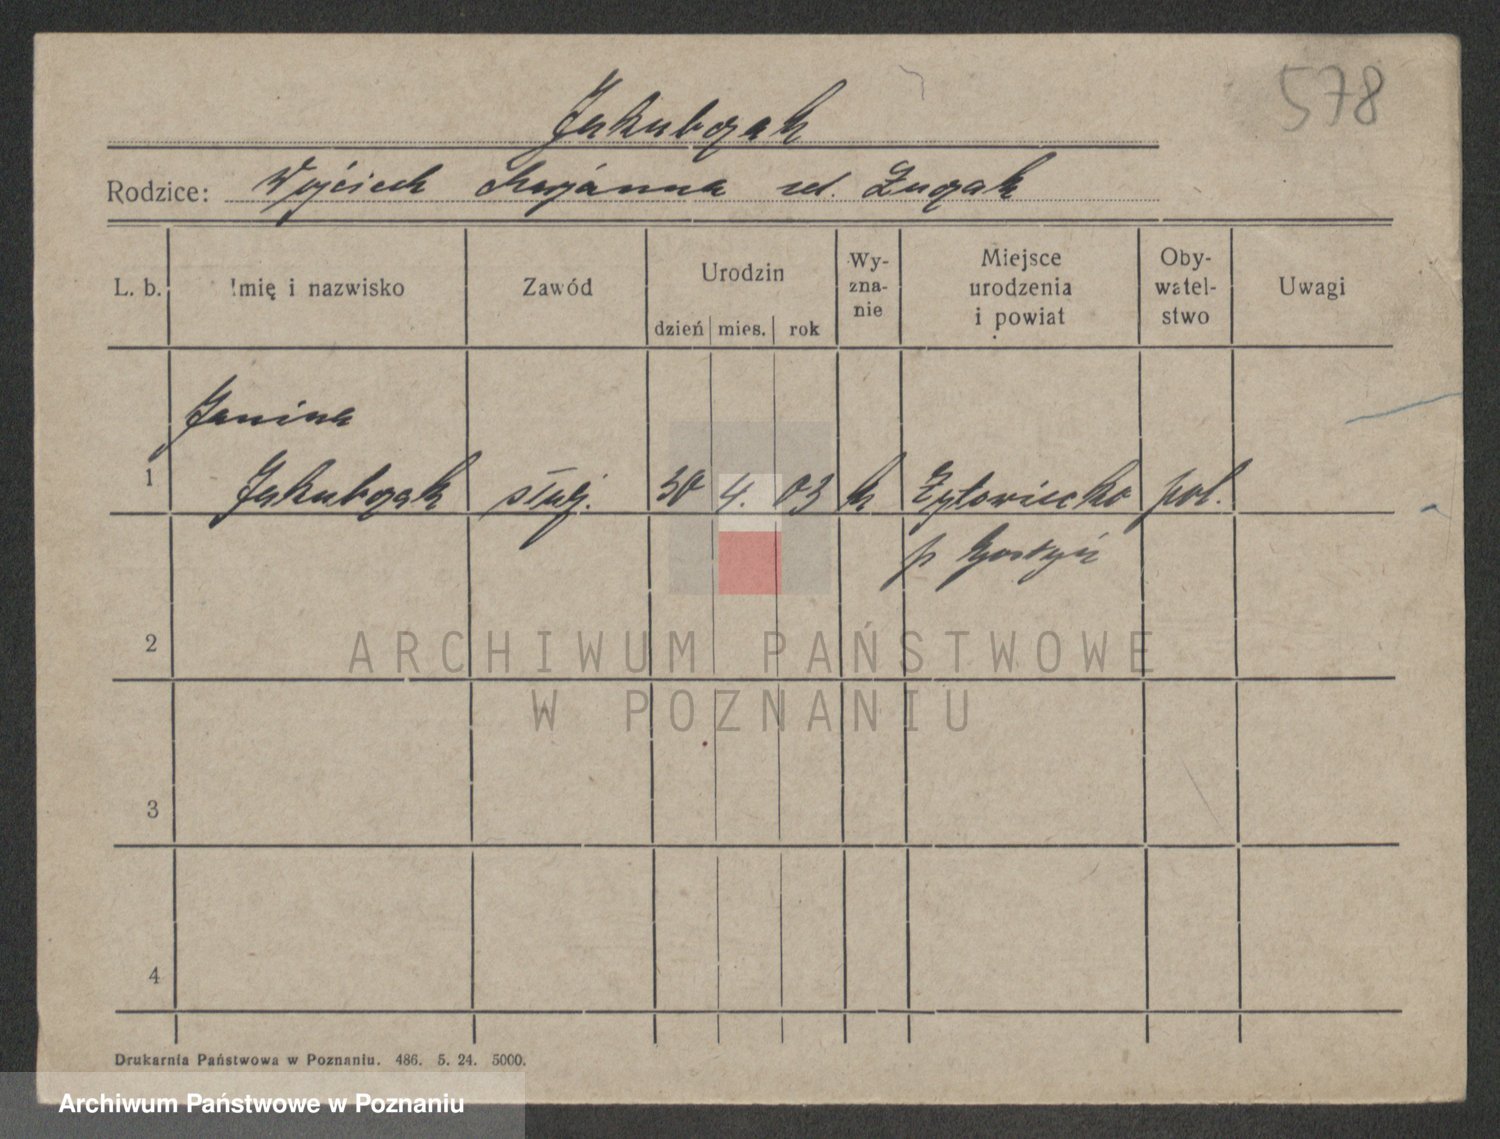 578
Jakubczak
Rodzice: Wojciech Maryanna
L. b. Imię i nazwisko Zawód Urodzin dzień mies. rok Wy-zna-nie Miejsce urodzenia i powiat Oby-watel-stwo Uwagi
Janina
1 Jakubczak służ. 30 4. 03 k Żytowiecko pol.
p Gostyń
2
ARCHIWUM PAŃSTWOWE
W POZNANIU
3
4
Drukarnia Państwowa w Poznaniu. 486. 5. 24. 5000.
Archiwum Państwowe w Poznaniu